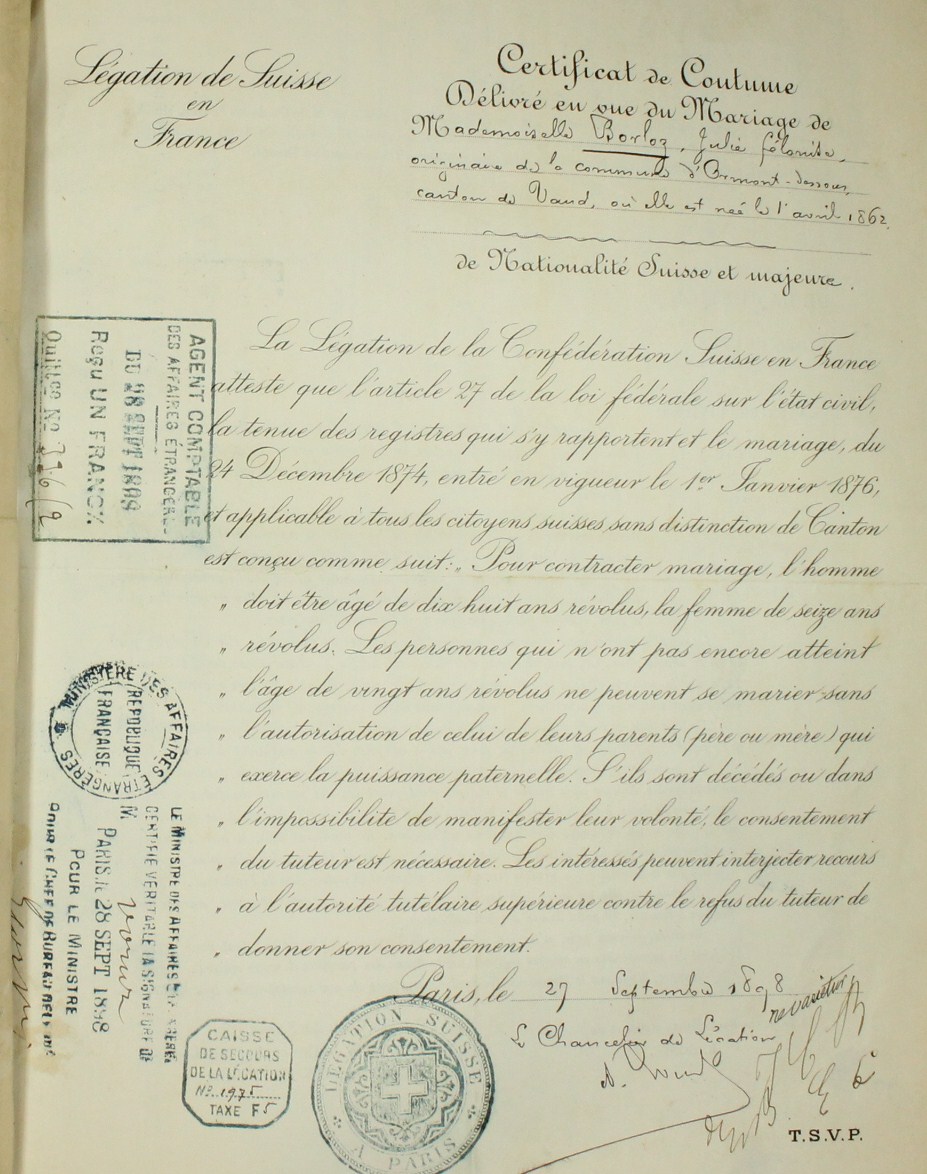 Légation de Suisse
en
France
Certificat de Coutume
Délivré en vue du Mariage de
Mademoiselle Borloz, Julie
originaire de la commune d'Ormont-dessous,
canton de Vaud, où elle est née le 1 avril 1862
de Nationalité Suisse et majeure.
La Légation de la Confédération Suisse en France
atteste que l'article 27 de la loi fédérale sur l'état civil,
la tenue des registres qui s'y rapportent et le mariage, du
24 Décembre 1874, entré en vigueur le 1er Janvier 1876,
et applicable à tous les citoyens suisses sans distinction de Canton
est conçu comme suit: „ Pour contracter mariage, l'homme
„ doit être âgé de dix huit ans révolus, la femme de seize ans
„ révolus. Les personnes qui n'ont pas encore atteint
„ l'âge de vingt ans révolus ne peuvent se marier sans
„ l'autorisation de celui de leurs parents (père ou mère) qui
„ exerce la puissance paternelle. S'ils sont décédés ou dans
„ l'impossibilité de manifester leur volonté, le consentement
„ du tuteur est nécessaire. Les intéressés peuvent interjecter recours
„ à l'autorité tutélaire supérieure contre le refus du tuteur de
„ donner son consentement.
Paris, le 27 Septembre 1898
Le Chancelier de Légation
ne varietur
T.S.V.P.
AGENT COMPTABLE
DES AFFAIRES ÉTRANGÈRES
DU 28 SEPT 1898
Reçu UN FRANC
Quittce No
MINISTÈRE DES AFFAIRES ÉTRANGÈRES
RÉPUBLIQUE
FRANÇAISE
LE MINISTRE DES AFFAIRES ÉTRANGÈRES
CERTIFIE VÉRITABLE LA SIGNATURE DE
M.
PARIS, le 28 SEPT 1898
POUR LE MINISTRE
POUR LE CHEF DE BUREAU
CAISSE
DE SECOURS
DE LA LÉGATION
No 1975
TAXE F 5
LÉGATION SUISSE
A PARIS